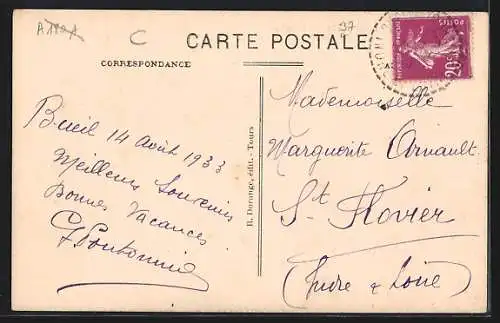 37
C
CARTE POSTALE
CORRESPONDANCE
POSTES
20c
Bueil 14 Août 1933
Meilleurs Souvenirs
Bonnes Vacances
R. Durange, édit. - Tours
Mademoiselle
Marguerite Arnault
St Flovier
(Indre & Loire)